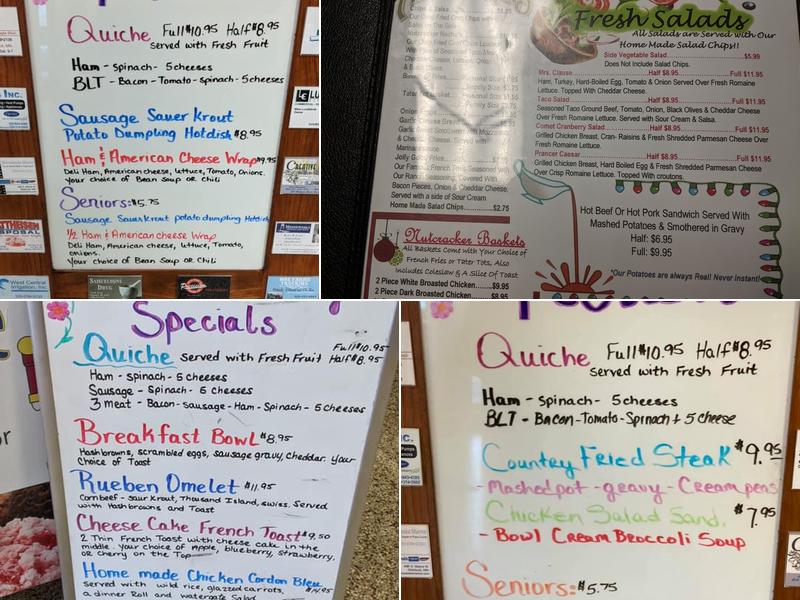 Quiche Full $10.95 Half $8.95
served with Fresh Fruit
Ham - spinach - 5 cheeses
BLT - Bacon - Tomato - spinach - 5 cheeses
Sausage Sauer krout
Potato Dumpling Hotdish $8.95
Ham & American Cheese Wrap $9.95
Deli Ham, American cheese, Lettuce, Tomato, Onions.
your choice of Bean Soup or Chili
Seniors: $5.75
Sausage Sauerkrout potato dumpling Hotdish
1/2 Ham & American cheese Wrap
Deli Ham, American cheese, Lettuce, Tomato,
onions.
your choice of Bean Soup or Chili
West Central
Irrigation, Inc.
Fresh Salads
All Salads are Served with Our
Home Made Salad Chips!!
Side Vegetable Salad $5.99
Does Not Include Salad Chips.
Mrs. Clause Half $8.95 Full $11.95
Ham, Turkey, Hard-Boiled Egg, Tomato & Onion Served Over Fresh Romaine
Lettuce. Topped With Cheddar Cheese.
Taco Salad Half $8.95 Full $11.95
Seasoned Taco Ground Beef, Tomato, Onion, Black Olives & Cheddar Cheese
Over Fresh Romaine Lettuce. Served with Sour Cream & Salsa.
Comet Cranberry Salad Half $8.95 Full $11.95
Grilled Chicken Breast, Cran- Raisins & Fresh Shredded Parmesan Cheese Over
Fresh Romaine Lettuce.
Prancer Caesar Half $8.95 Full $11.95
Grilled Chicken Breast, Hard Boiled Egg & Fresh Shredded Parmesan Cheese
Over Crisp Romaine Lettuce. Topped With croutons.
Bacon Pieces, Onion & Cheddar Cheese.
Served with a side of Sour Cream
Home Made Salad Chips $2.75
Nutcracker Baskets
All Baskets Come with Your Choice of
French Fries or Tater Tots, Also
Includes Coleslaw & A Slice Of Toast
2 Piece White Broasted Chicken $9.95
2 Piece Dark Broasted Chicken $8.95
Hot Beef Or Hot Pork Sandwich Served With
Mashed Potatoes & Smothered in Gravy
Half: $6.95
Full: $9.95
*Our Potatoes are always Real! Never Instant!
Specials
Quiche served with Fresh Fruit Full $10.95 Half $8.95
Ham - spinach - 5 cheeses
Sausage - Spinach - 5 cheeses
3 meat - Bacon - sausage - Ham - Spinach - 5 cheeses
Breakfast Bowl $8.95
Hashbrowns, scrambled eggs, sausage gravy, cheddar. your
choice of Toast
Rueben Omelet $11.95
Cornbeef - saur Krout, Thousand Island, swiss. Served
with Hashbrowns and Toast
Cheese Cake French Toast $9.50
2 Thin French Toast with cheese cake in the
middle. your choice of Apple, blueberry, strawberry,
or cherry on the Top
Home made Chicken Cordon Bleu
served with wild rice, glazzed carrots, $14.95
a dinner Roll and watergate Salad
Quiche Full $10.95 Half $8.95
served with Fresh Fruit
Ham - spinach - 5 cheeses
BLT - Bacon - Tomato - Spinach + 5 cheese
Country Fried Steak $9.95
- Mashed pot - gravy - Cream peas
Chicken Salad Sand. $7.95
- Bowl Cream Broccoli Soup
Seniors: $5.75